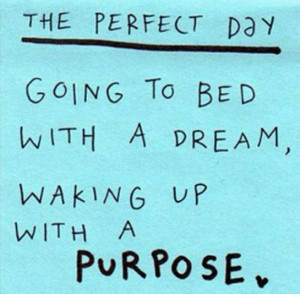 THE PERFECT DaY
GOING TO BED
WITH A DREAM,
WAKING UP
WITH A
PURPOSE.